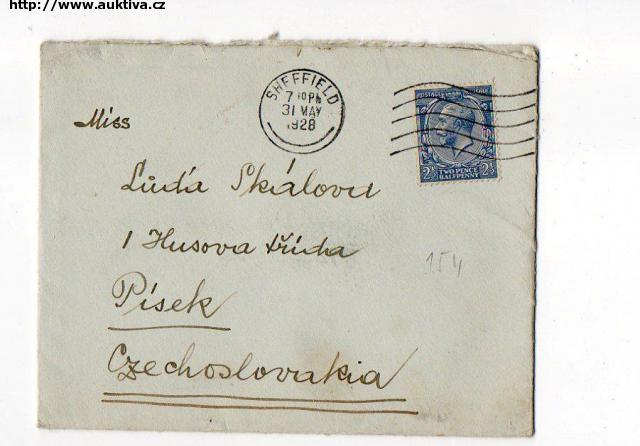 http://www.auktiva.cz
SHEFFIELD
7 10 PM
31 MAY
1928
POSTAGE REVENUE
TWO PENCE
HALFPENNY
2½ 2½
Miss
Lída Skálová
1 Husova třída
154
Písek
Czechoslovakia